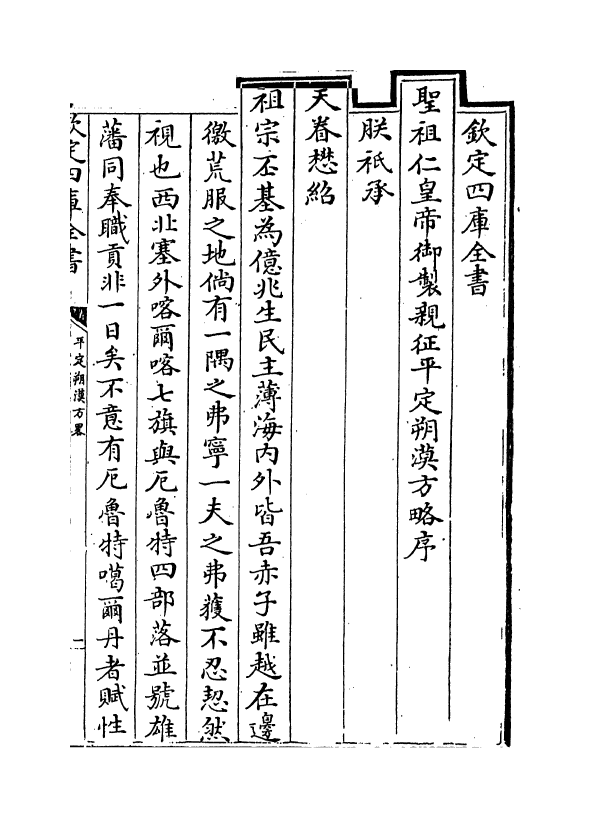 欽定四庫全書
聖祖仁皇帝御製親征平定朔漠方略序
朕祇承
天眷懋紹
祖宗丕基為億兆生民主薄海內外皆吾赤子雖越在邊
徼荒服之地倘有一隅之弗寧一夫之弗獲不忍恝然
視也西北塞外喀爾喀七旗與厄魯特四部落並號雄
藩同奉職貢非一日矣不意有厄魯特噶爾丹者賦性
欽定四庫全書
平定朔漠方畧
一